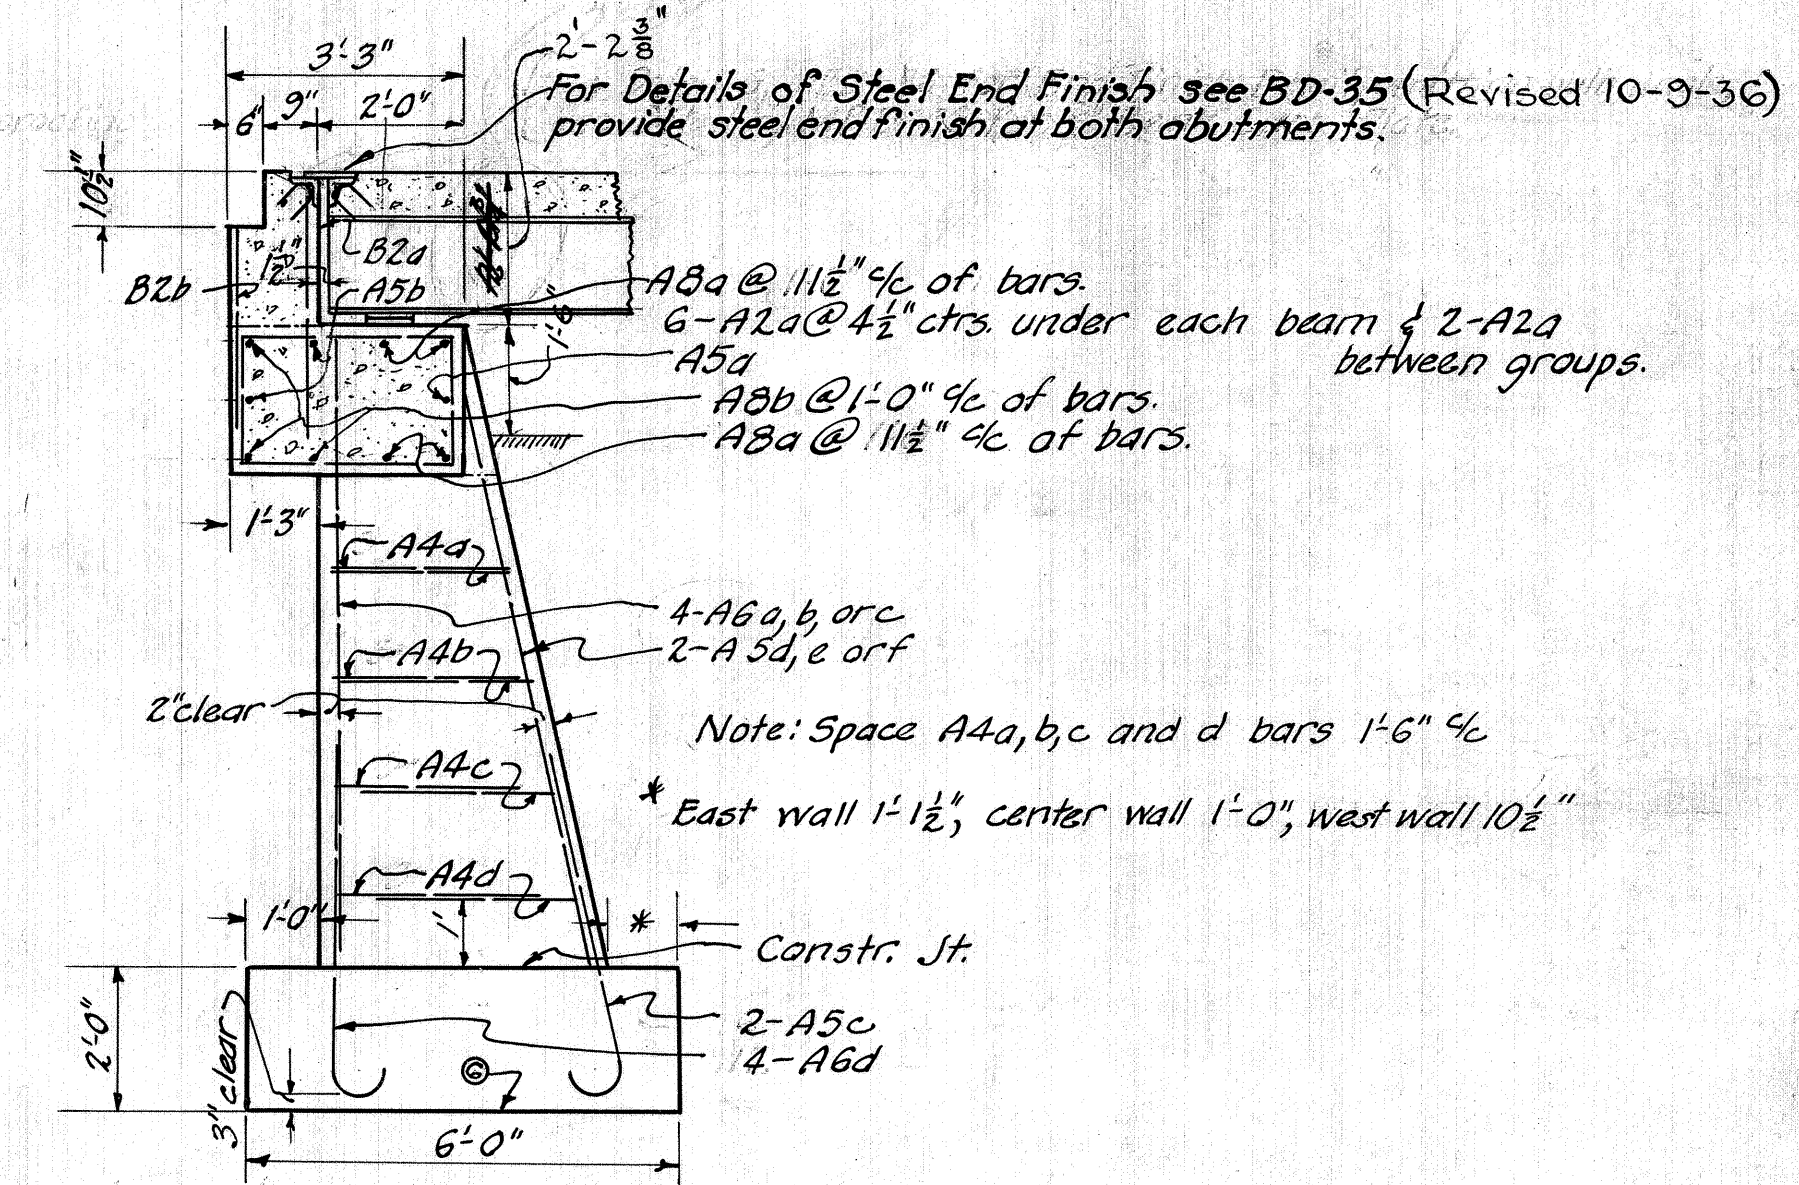 2'-2 3/8"
3'-3"
For Details of Steel End Finish see BD-35 (Revised 10-9-36)
6" 9" 2'-0"
provide steel end finish at both abutments.
10 1/2"
B2a
1/2"
B2b
A5b
A8a @ 11 1/2" c/c of bars.
6-A2a @ 4 1/2" ctrs. under each beam & 2-A2a
between groups.
1'-6"
A5a
A8b @ 1'-0" c/c of bars.
A8a @ 11 1/2" c/c of bars.
1'-3"
A4a
4-A6a, b, or c
2-A5d, e or f
A4b
2" clear
Note: Space A4a, b, c and d bars 1'-6" c/c
A4c
* East wall 1'-1 1/2", center wall 1'-0", west wall 10 1/2"
A4d
1'-0"
1'
*
Constr. Jt.
2'-0"
3" clear
2-A5c
4-A6d
6
6'-0"